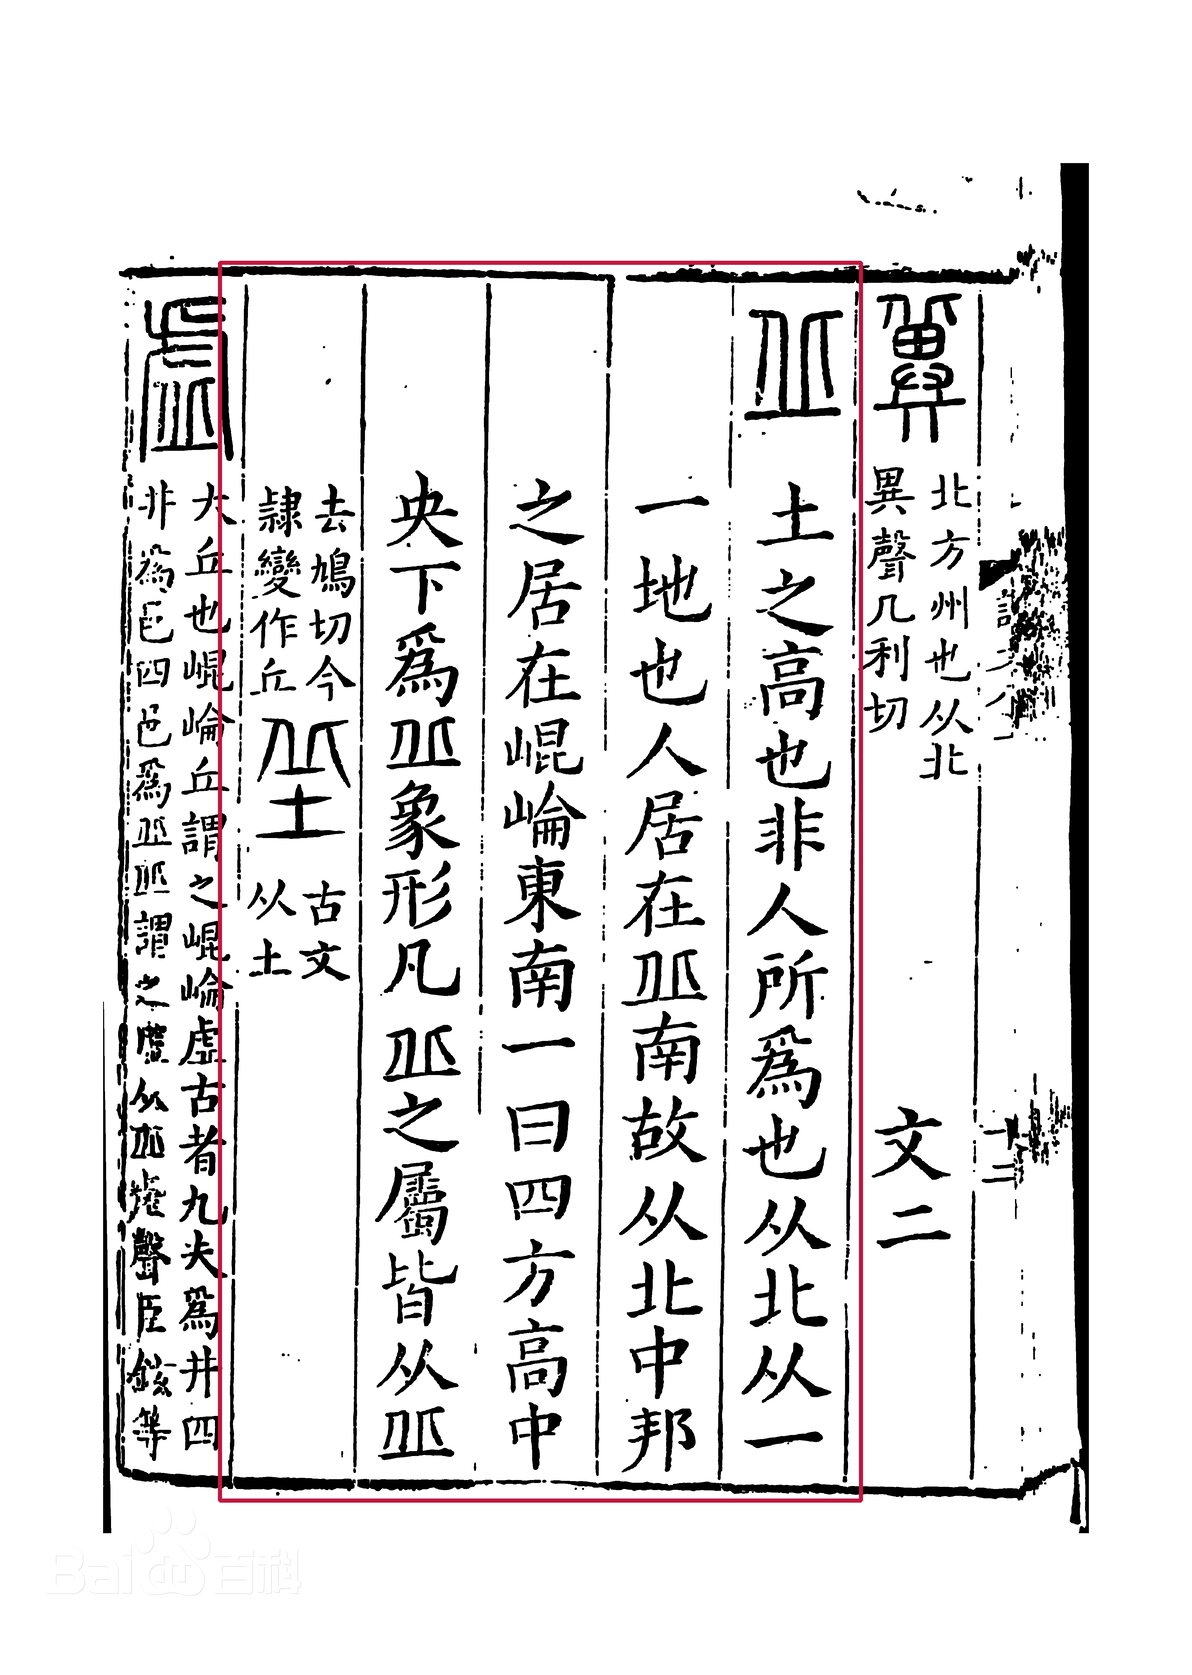 冀
北方州也从北
異聲几利切
文二
丠
土之高也非人所爲也从北从一
一地也人居在丠南故从北中邦
之居在崐崘東南一曰四方高中
央下爲丠象形凡丠之屬皆从丠
去鳩切今
隸變作丘
𡊣
古文
从土
虛
大丘也崐崘丘謂之崐崘虛古者九夫爲井四
井爲邑四邑爲丠丠謂之虛从丠虍聲臣鉉等
Bai百科